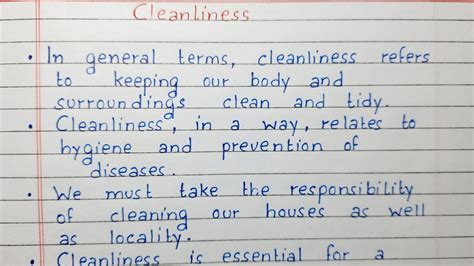 Cleanliness
• In general terms, cleanliness refers
to keeping our body and
surroundings clean and tidy.
• Cleanliness, in a way, relates to
hygiene and prevention of
diseases.
• We must take the responsibility
of cleaning our houses as well
as locality.
• Cleanliness is essential for a